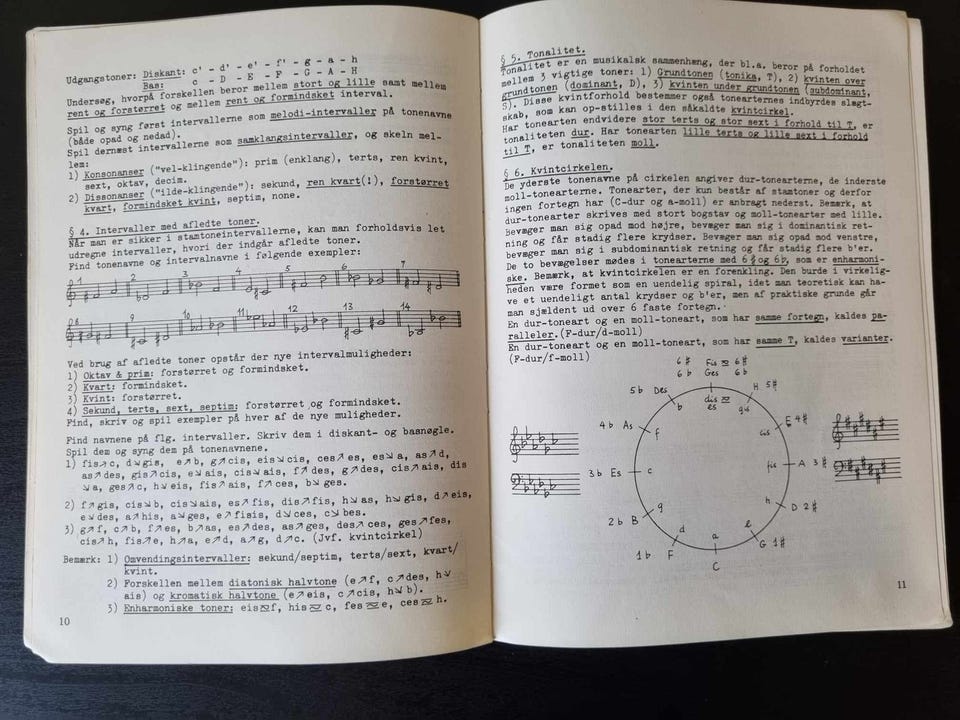 Udgangstoner: Diskant: c' - d' - e' - f' - g - a - h
Bas: c - D - E - F - G - A - H
Undersøg, hvorpå forskellen beror mellem stort og lille samt mellem
rent og forstørret og mellem rent og formindsket interval.
Spil og syng først intervallerne som melodi-intervaller på tonenavne
(både opad og nedad).
Spil dernæst intervallerne som samklangsintervaller, og skeln mel-
lem:
1) Konsonanser ("vel-klingende"): prim (enklang), terts, ren kvint,
sext, oktav, decim.
2) Dissonanser ("ilde-klingende"): sekund, ren kvart(!), forstørret
kvart, formindsket kvint, septim, none.
§ 4. Intervaller med afledte toner.
Når man er sikker i stamtoneintervallerne, kan man forholdsvis let
udregne intervaller, hvori der indgår afledte toner.
Find tonenavne og intervalnavne i følgende exempler:
1 2 3 4 5 6 7
8 9 10 11 12 13 14
Ved brug af afledte toner opstår der nye intervalmuligheder:
1) Oktav & prim: forstørret og formindsket.
2) Kvart: formindsket.
3) Kvint: forstørret.
4) Sekund, terts, sext, septim: forstørret og formindsket.
Find, skriv og spil exempler på hver af de nye muligheder.
Find navnene på flg. intervaller. Skriv dem i diskant- og basnøgle.
Spil dem og syng dem på tonenavnene.
1) fis↗c, d↘gis, e↗b, g↗cis, eis↘cis, ces↗es, es↘a, as↗d,
as↗des, gis↗cis, e↘ais, cis↘ais, f↗des, g↗des, cis↗ais, dis
↘a, ges↗c, h↘eis, fis↗ais, f↗ces, b↘ges.
2) f↗gis, cis↘b, cis↘ais, es↗fis, dis↗fis, h↘as, h↘gis, d↗eis,
e↘des, a↗his, a↘ges, e↗fisis, d↘ces, c↘bes.
3) g↗f, c↗b, f↗es, b↗as, es↗des, as↗ges, des↗ces, ges↗fes,
cis↗h, fis↗e, h↗a, e↗d, a↗g, d↗c. (Jvf. kvintcirkel)
Bemærk: 1) Omvendingsintervaller: sekund/septim, terts/sext, kvart/
kvint.
2) Forskellen mellem diatonisk halvtone (e↗f, c↗des, h↘
ais) og kromatisk halvtone (e↗eis, c↗cis, h↘b).
3) Enharmoniske toner: eis f, his c, fes e, ces h.
10
§ 5. Tonalitet.
Tonalitet er en musikalsk sammenhæng, der bl.a. beror på forholdet
mellem 3 vigtige toner: 1) Grundtonen (tonika, T), 2) kvinten over
grundtonen (dominant, D), 3) kvinten under grundtonen (subdominant,
S). Disse kvintforhold bestemmer også tonearternes indbyrdes slægt-
skab, som kan op-stilles i den såkaldte kvintcirkel.
Har tonearten endvidere stor terts og stor sext i forhold til T, er
tonaliteten dur. Har tonearten lille terts og lille sext i forhold
til T, er tonaliteten moll.
§ 6. Kvintcirkelen.
De yderste tonenavne på cirkelen angiver dur-tonearterne, de inderste
moll-tonearterne. Tonearter, der kun består af stamtoner og derfor
ingen fortegn har (C-dur og a-moll) er anbragt nederst. Bemærk, at
dur-tonearter skrives med stort bogstav og moll-tonearter med lille.
Bevæger man sig opad mod højre, bevæger man sig i dominantisk ret-
ning og får stadig flere krydser. Bevæger man sig opad mod venstre,
bevæger man sig i subdominantisk retning og får stadig flere b'er.
De to bevægelser mødes i tonearterne med 6♯ og 6b, som er enharmoni-
ske. Bemærk, at kvintcirkelen er en forenkling. Den burde i virkelig-
heden være formet som en uendelig spiral, idet man teoretisk kan ha-
ve et uendeligt antal krydser og b'er, men af praktiske grunde går
man sjældent ud over 6 faste fortegn.
En dur-toneart og en moll-toneart, som har samme fortegn, kaldes pa-
ralleler.(F-dur/d-moll)
En dur-toneart og en moll-toneart, som har samme T, kaldes varianter.
(F-dur/f-moll)
6♯ Fis 6♯
6b Ges 6b
5b Des b dis es gis H 5♯
4b As f cis E 4♯
3b Es c fis A 3♯
2b B g h D 2♯
1b F d a e G 1♯
C
11